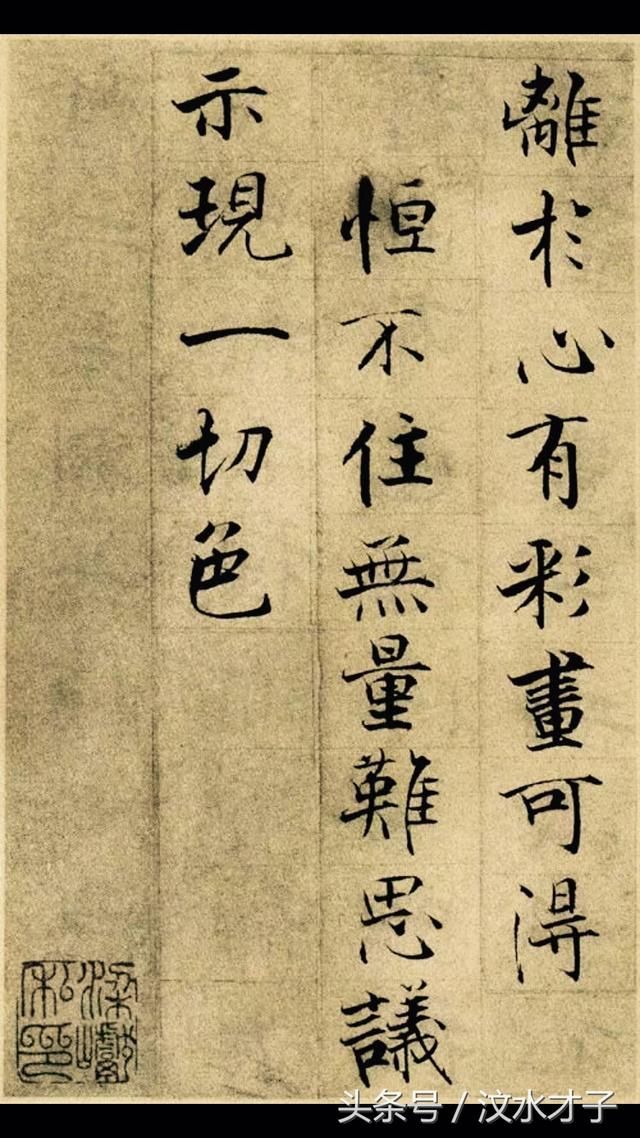 離於心有彩畫可得
恒不住無量難思議
示現一切色
梁巘私印
头条号 / 汶水才子